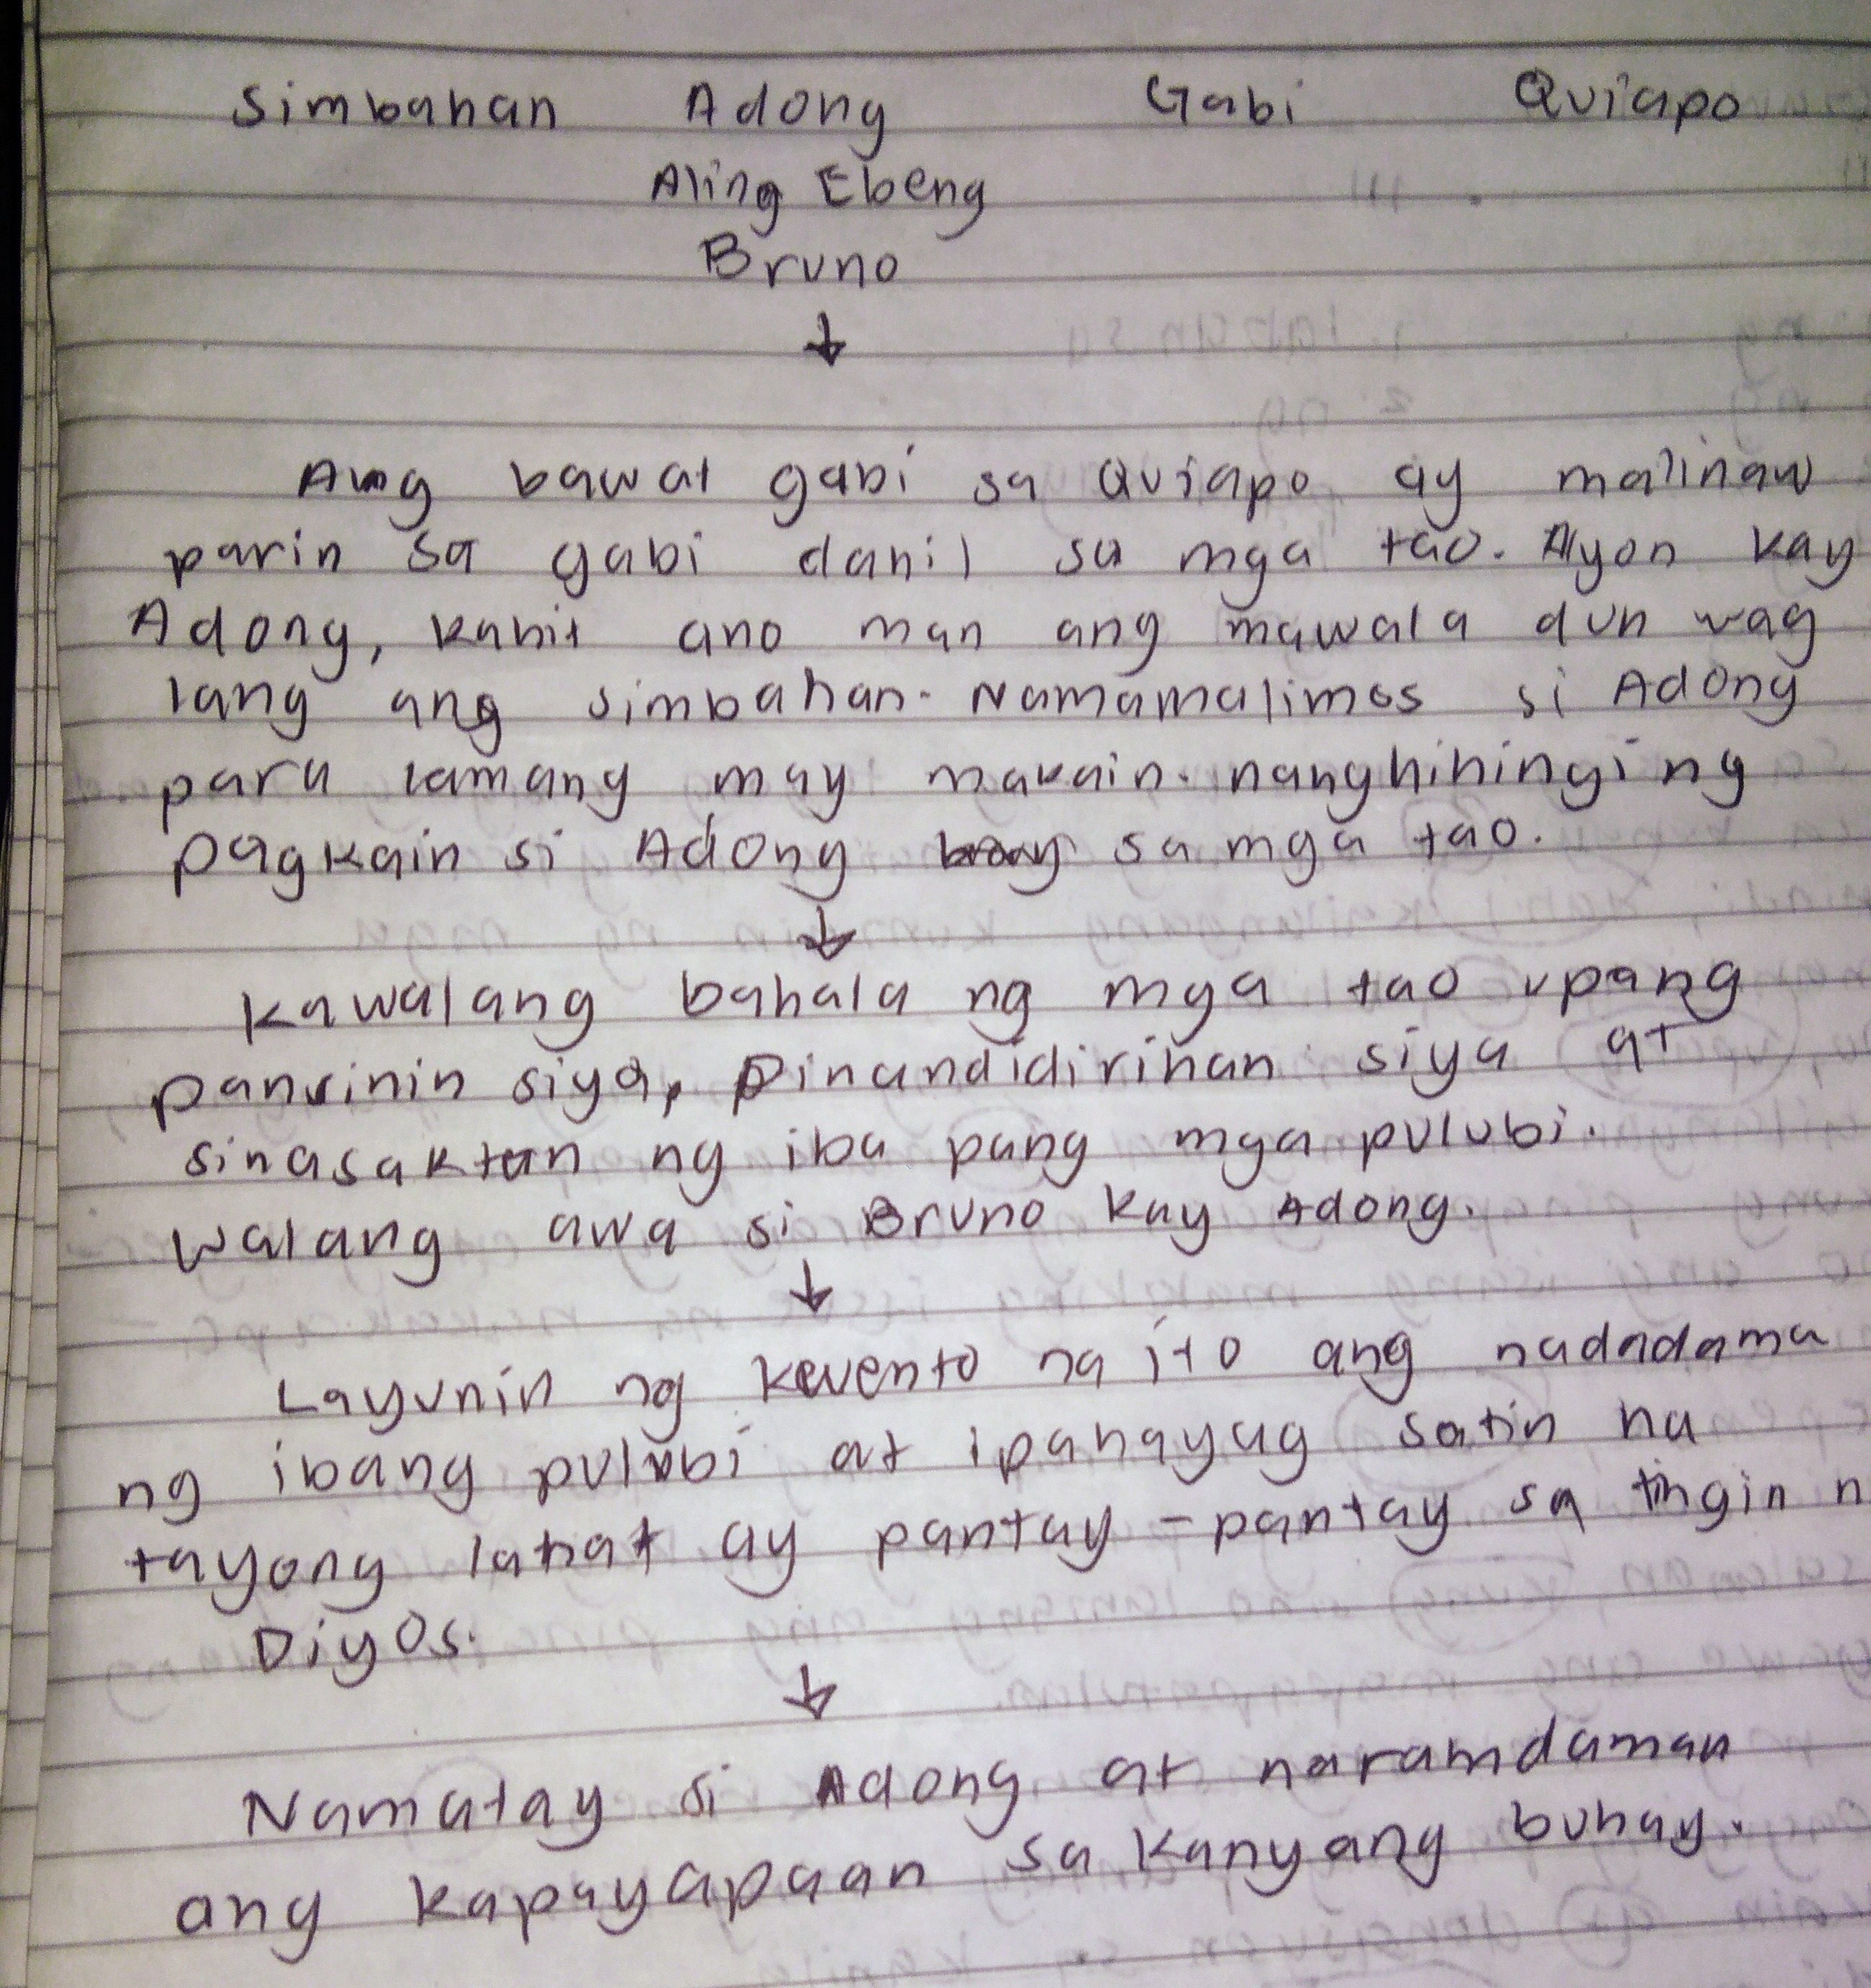 Simbahan Adong Gabi Quiapo
Aling Ebeng
Bruno
Ang bawat gabi sa Quiapo ay malinaw
parin sa gabi dahil sa mga tao. Ayon kay
Adong, kahit ano man ang mawala dun wag
lang ang simbahan. Namamalimos si Adong
para lamang may makain. nanghihingi ng
pagkain si Adong sa mga tao.
Kawalang bahala ng mga tao upang
pansinin siya, pinandidirihan siya at
sinasaktan ng iba pang mga pulubi.
Walang awa si Bruno kay Adong.
Layunin ng kwento na ito ang nadadama
ng ibang pulubi at ipahayag satin na
tayong lahat ay pantay-pantay sa tingin n
Diyos.
Namatay si Adong at naramdaman
ang kapayapaan sa kanyang buhay.